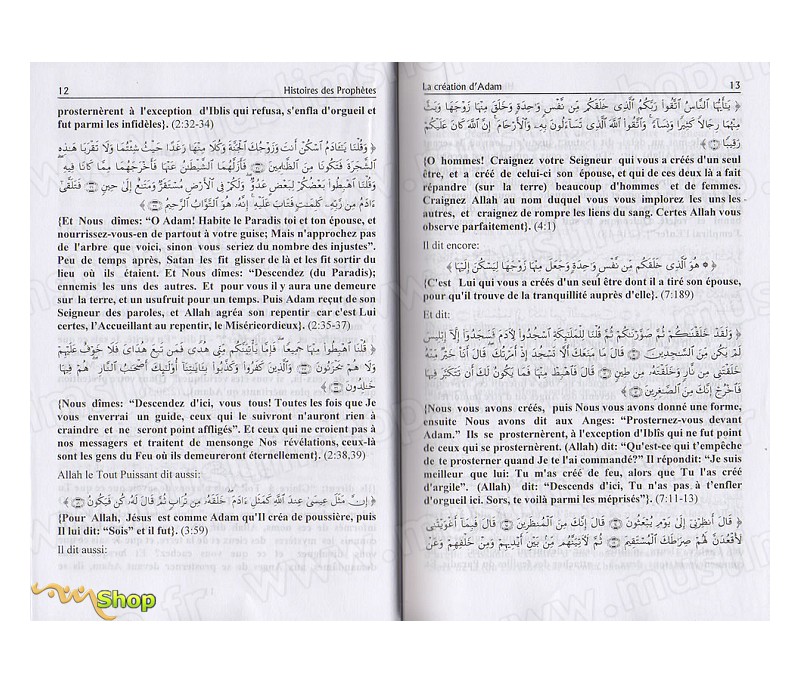 12 Histoires des Prophètes
prosternèrent à l'exception d'Iblis qui refusa, s'enfla d'orgueil et
fut parmi les infidèles}. (2:32-34)
﴿ وَقُلْنَا يَٰٓـَٔادَمُ ٱسْكُنْ أَنتَ وَزَوْجُكَ ٱلْجَنَّةَ وَكُلَا مِنْهَا رَغَدًا حَيْثُ شِئْتُمَا وَلَا تَقْرَبَا هَٰذِهِ
ٱلشَّجَرَةَ فَتَكُونَا مِنَ ٱلظَّٰلِمِينَ فَأَزَلَّهُمَا ٱلشَّيْطَٰنُ عَنْهَا فَأَخْرَجَهُمَا مِمَّا كَانَا فِيهِ
وَقُلْنَا ٱهْبِطُوا۟ بَعْضُكُمْ لِبَعْضٍ عَدُوٌّ وَلَكُمْ فِى ٱلْأَرْضِ مُسْتَقَرٌّ وَمَتَٰعٌ إِلَىٰ حِينٍ فَتَلَقَّىٰٓ
ءَادَمُ مِن رَّبِّهِۦ كَلِمَٰتٍ فَتَابَ عَلَيْهِ إِنَّهُۥ هُوَ ٱلتَّوَّابُ ٱلرَّحِيمُ ﴾
{Et Nous dîmes: “O Adam! Habite le Paradis toi et ton épouse, et
nourrissez-vous-en de partout à votre guise; Mais n'approchez pas
de l'arbre que voici, sinon vous seriez du nombre des injustes”.
Peu de temps après, Satan les fit glisser de là et les fit sortir du
lieu où ils étaient. Et Nous dîmes: “Descendez (du Paradis);
ennemis les uns des autres. Et pour vous il y aura une demeure
sur la terre, et un usufruit pour un temps. Puis Adam reçut de son
Seigneur des paroles, et Allah agréa son repentir car c'est Lui
certes, l'Accueillant au repentir, le Miséricordieux}. (2:35-37)
﴿ قُلْنَا ٱهْبِطُوا۟ مِنْهَا جَمِيعًا فَإِمَّا يَأْتِيَنَّكُم مِّنِّى هُدًى فَمَن تَبِعَ هُدَاىَ فَلَا خَوْفٌ عَلَيْهِمْ
وَلَا هُمْ يَحْزَنُونَ وَٱلَّذِينَ كَفَرُوا۟ وَكَذَّبُوا۟ بِـَٔايَٰتِنَآ أُو۟لَٰٓئِكَ أَصْحَٰبُ ٱلنَّارِ هُمْ فِيهَا
خَٰلِدُونَ ﴾
{Nous dîmes: “Descendez d'ici, vous tous! Toutes les fois que Je
vous enverrai un guide, ceux qui le suivront n'auront rien à
craindre et ne seront point affligés”. Et ceux qui ne croient pas à
nos messagers et traitent de mensonge Nos révélations, ceux-là
sont les gens du Feu où ils demeureront éternellement}. (2:38,39)
Allah le Tout Puissant dit aussi:
﴿ إِنَّ مَثَلَ عِيسَىٰ عِندَ ٱللَّهِ كَمَثَلِ ءَادَمَ خَلَقَهُۥ مِن تُرَابٍ ثُمَّ قَالَ لَهُۥ كُن فَيَكُونُ ﴾
{Pour Allah, Jésus est comme Adam qu'Il créa de poussière, puis
Il lui dit: “Sois” et il fut}. (3:59)
Il dit aussi:
La création d'Adam 13
﴿ يَٰٓأَيُّهَا ٱلنَّاسُ ٱتَّقُوا۟ رَبَّكُمُ ٱلَّذِى خَلَقَكُم مِّن نَّفْسٍ وَٰحِدَةٍ وَخَلَقَ مِنْهَا زَوْجَهَا وَبَثَّ
مِنْهُمَا رِجَالًا كَثِيرًا وَنِسَآءً وَٱتَّقُوا۟ ٱللَّهَ ٱلَّذِى تَسَآءَلُونَ بِهِۦ وَٱلْأَرْحَامَ إِنَّ ٱللَّهَ كَانَ عَلَيْكُمْ
رَقِيبًا ﴾
{O hommes! Craignez votre Seigneur qui vous a créés d'un seul
être, et a créé de celui-ci son épouse, et qui de ces deux là a fait
répandre (sur la terre) beaucoup d'hommes et de femmes.
Craignez Allah au nom duquel vous vous implorez les uns les
autres, et craignez de rompre les liens du sang. Certes Allah vous
observe parfaitement}. (4:1)
Il dit encore:
﴿ ۞ هُوَ ٱلَّذِى خَلَقَكُم مِّن نَّفْسٍ وَٰحِدَةٍ وَجَعَلَ مِنْهَا زَوْجَهَا لِيَسْكُنَ إِلَيْهَا ﴾
{C'est Lui qui vous a créés d'un seul être dont il a tiré son épouse,
pour qu'il trouve de la tranquillité auprès d'elle}. (7:189)
Et dit:
﴿ وَلَقَدْ خَلَقْنَٰكُمْ ثُمَّ صَوَّرْنَٰكُمْ ثُمَّ قُلْنَا لِلْمَلَٰٓئِكَةِ ٱسْجُدُوا۟ لِـَٔادَمَ فَسَجَدُوٓا۟ إِلَّآ إِبْلِيسَ
لَمْ يَكُن مِّنَ ٱلسَّٰجِدِينَ قَالَ مَا مَنَعَكَ أَلَّا تَسْجُدَ إِذْ أَمَرْتُكَ قَالَ أَنَا۠ خَيْرٌ مِّنْهُ
خَلَقْتَنِى مِن نَّارٍ وَخَلَقْتَهُۥ مِن طِينٍ قَالَ فَٱهْبِطْ مِنْهَا فَمَا يَكُونُ لَكَ أَن تَتَكَبَّرَ فِيهَا
فَٱخْرُجْ إِنَّكَ مِنَ ٱلصَّٰغِرِينَ ﴾
{Nous vous avons créés, puis Nous vous avons donné une forme,
ensuite Nous avons dit aux Anges: “Prosternez-vous devant
Adam.” Ils se prosternèrent, à l'exception d'Iblîs qui ne fut point
de ceux qui se prosternèrent. (Allah) dit: “Qu'est-ce qui t'empêche
de te prosterner quand Je te l'ai commandé?” Il répondit: “Je suis
meilleur que lui: Tu m'as créé de feu, alors que Tu l'as créé
d'argile”. (Allah) dit: “Descends d'ici, Tu n'as pas à t'enfler
d'orgueil ici. Sors, te voilà parmi les méprisés”}. (7:11-13)
﴿ قَالَ أَنظِرْنِىٓ إِلَىٰ يَوْمِ يُبْعَثُونَ قَالَ إِنَّكَ مِنَ ٱلْمُنظَرِينَ قَالَ فَبِمَآ أَغْوَيْتَنِى
لَأَقْعُدَنَّ لَهُمْ صِرَٰطَكَ ٱلْمُسْتَقِيمَ ثُمَّ لَـَٔاتِيَنَّهُم مِّنۢ بَيْنِ أَيْدِيهِمْ وَمِنْ خَلْفِهِمْ وَعَنْ
Shop